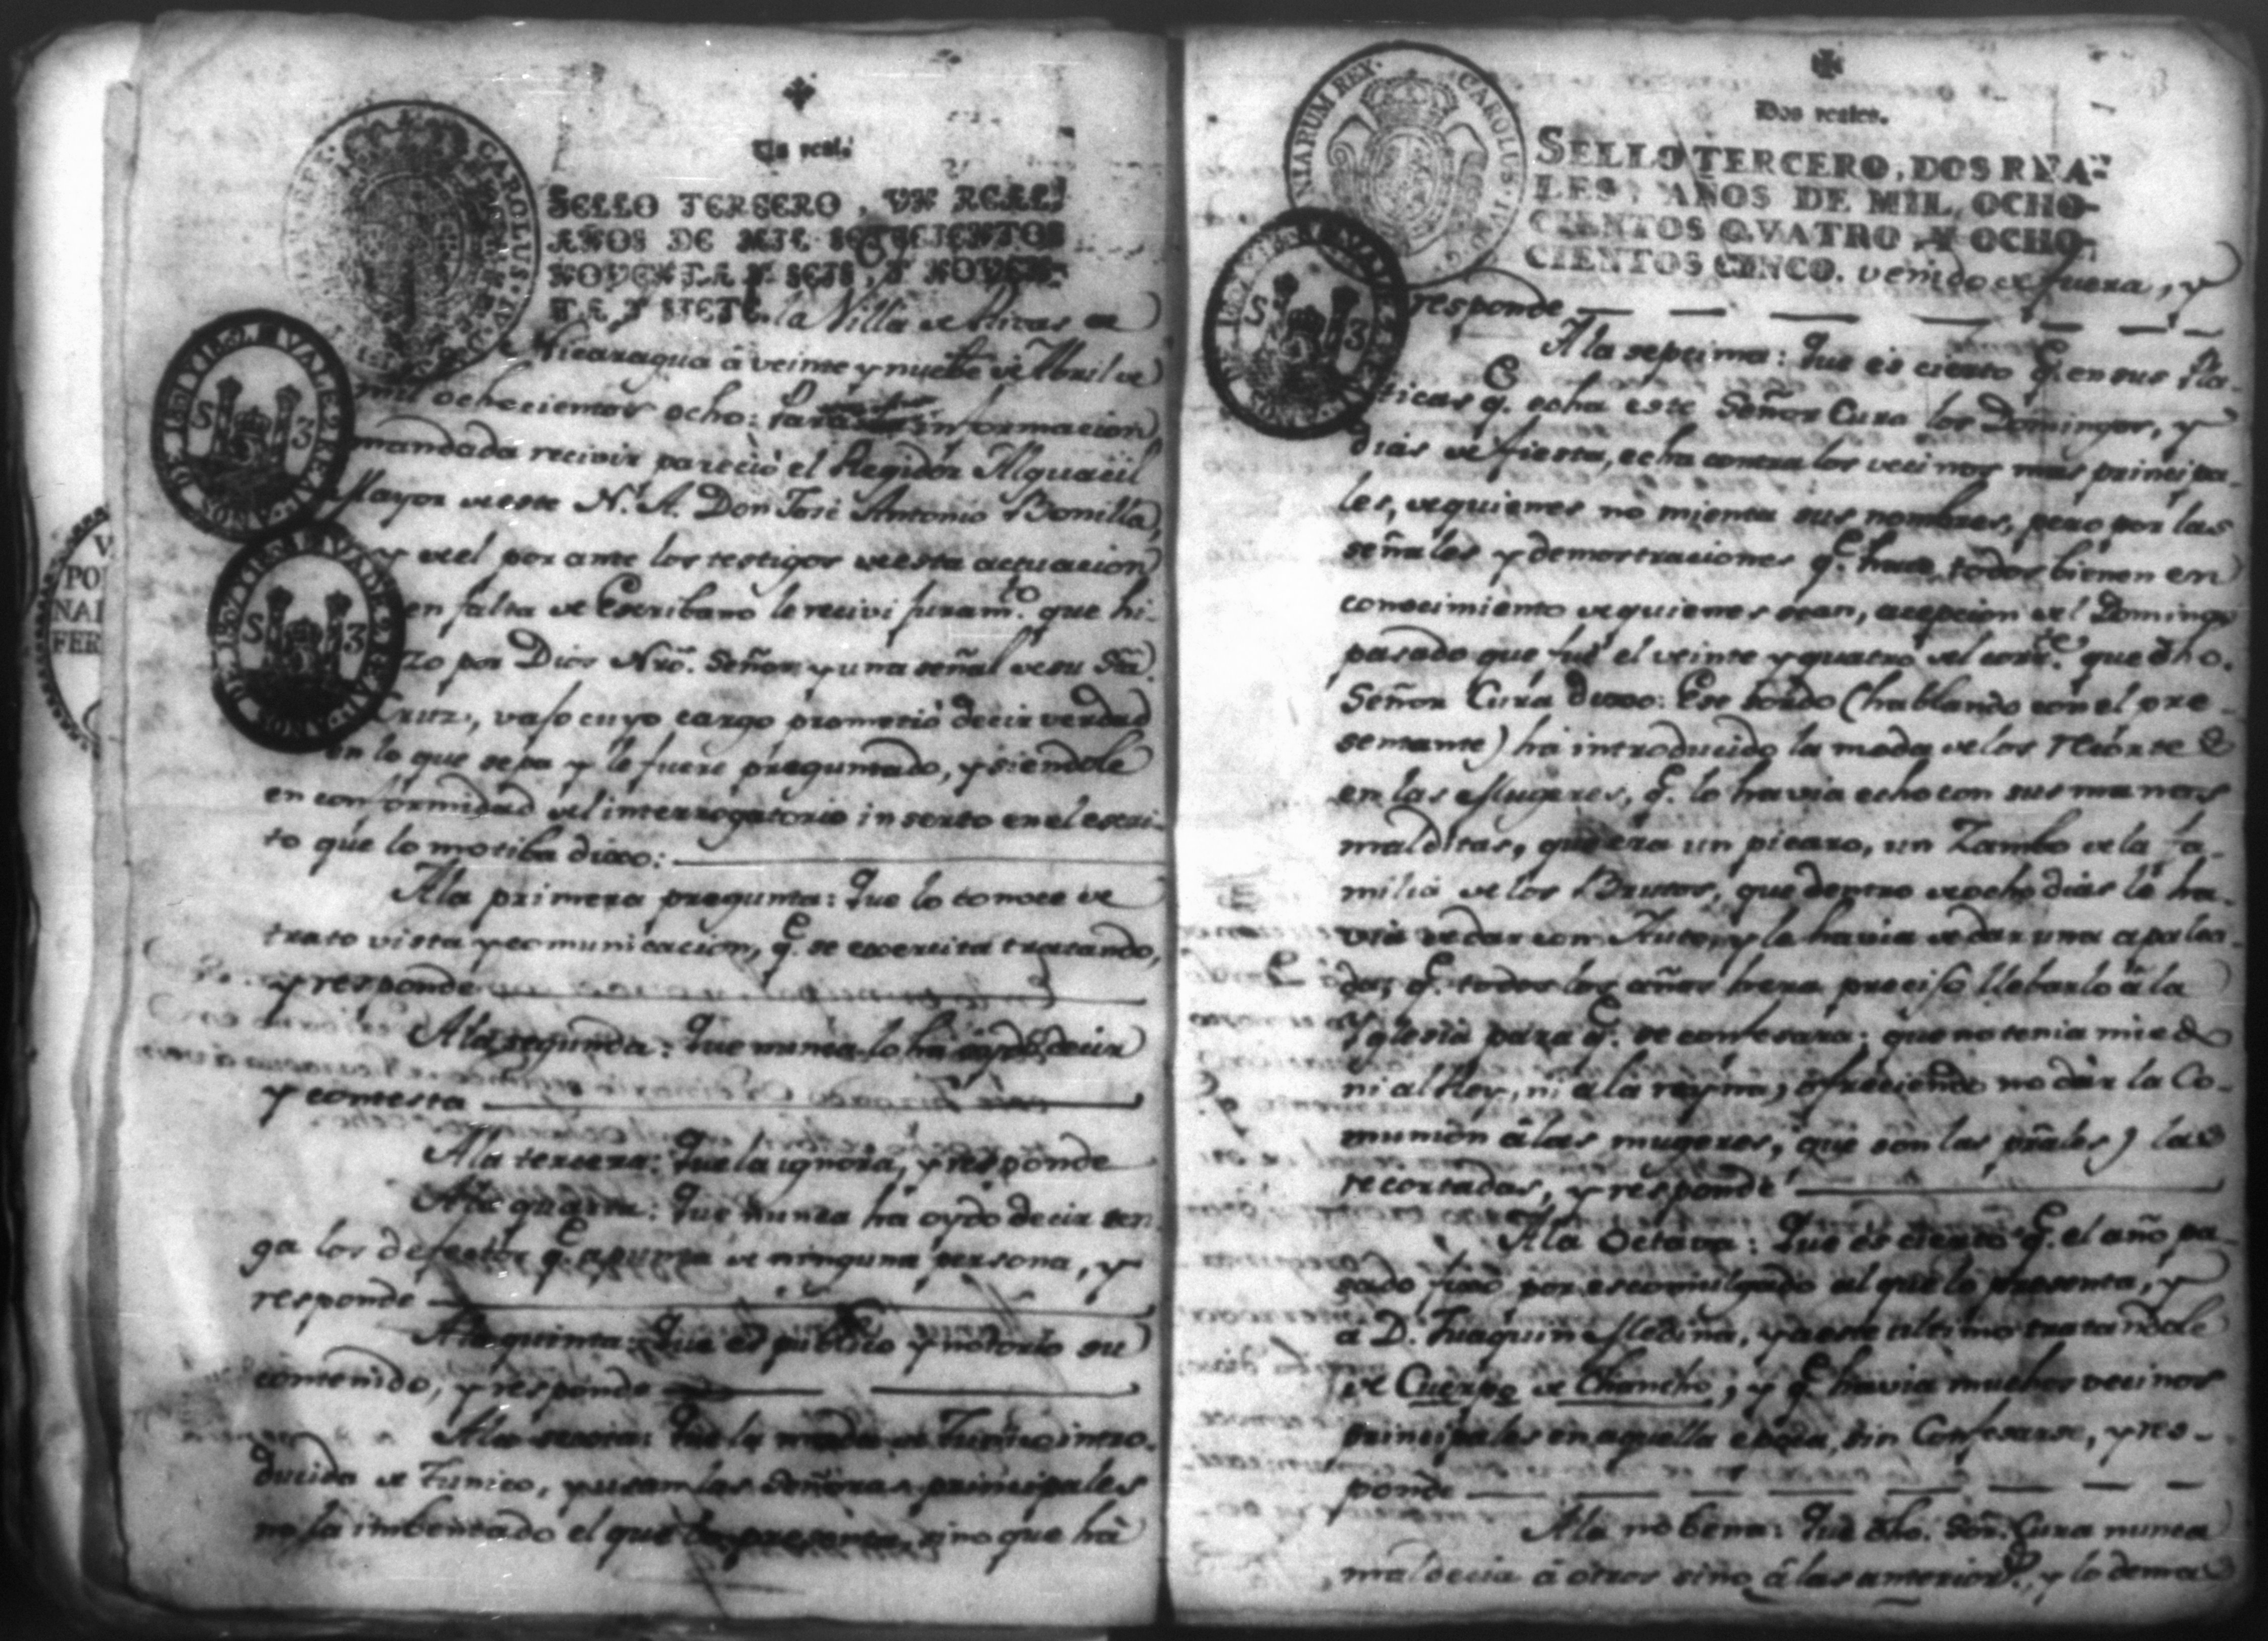 Un real.
SELLO TERCERO, VN REAL
AÑOS DE MIL SETECIENTOS
NOVENTA Y SEIS, Y NOVEN-
TA Y SIETE. la Villa de Rivas de
Nicaragua â veinte y nuebe de Abril de
mil ochocientos ocho: Para informacion
mandada recivir pareciò el Regidor Alguacil
Mayor de este N. A. Don José Antonio Bonilla,
y de el por ante los testigos de esta actuacion
en falta de Escribano le recivi juram.to que hi-
zo por Dios Nrô. Señor y una señal de su Sta.
Cruz, vajo cuyo cargo prometiò decir verdad
en lo que sepa y le fuere preguntado, y siendole
en conformidad del interrogatorio inserto en el escri-
to que lo motiba dixo:
A la primera pregunta: Que lo conoce de
trato vista y comunicacion, q.e se exercita tratando,
y responde
A la segunda: Que nunca lo há oydo decir
y contesta
A la tercera: Que la ignora, y responde
A la quarta: Que nunca há oydo decir ten-
ga los defectos q.e apunta de ninguna persona, y
responde
A la quinta: Que es publico y notorio su
contenido, y responde
A la sexta: Que la moda de Tunico intro-
ducida de Tunico, y usan las señoras principales
no la imbentado el que lo presenta, sino que há
Dos reales.
SELLO TERCERO, DOS REA-
LES, AÑOS DE MIL OCHO-
CIENTOS QVATRO, Y OCHO-
CIENTOS CINCO. venido de fuera, y
responde
A la septima: Que es cierto q.e en sus Pla-
ticas q.e echa este Señor Cura los Domingos, y
dias de fiesta, echa contra los vecinos mas principa-
les, de quienes no mienta sus nombres, pero por las
señales y demostraciones q.e hace, todos bienen en
conocimiento de quienes sean, acepcion del Domingo
pasado que fué el veinte y quatro del corr.te que dho.
Señor Cura dixo: Ese sordo (hablando con el pre-
sentante) há introducido la moda de los recortes
en las Mugeres, q.e lo havia echo con sus manos
malditas, que era un picaro, un Zambo de la fa-
milia de los Brutos, que dentro de ocho dias le ha-
via de dar con Auto, y le havia de dar una apalea-
da; q.e todos los años hera preciso llebarlo â la
Yglesia para q.e se confesara: que no tenia miedo
ni al Rey, ni a la reyna, ofreciendo no dár la Co-
munion â las mugeres, que son las prâles) las
recortadas, y responde
A la Octava: Que es cierto q.e el año pa-
sado fixó por escomulgado al que lo presenta, y
a D. Juaquin Medina, y a este ultimo tratandole
de Cuerpo de Chancho, y q.e havia muchos vecinos
principales en aquella epoca, sin Confesarse, y res-
ponde
A la nobena: Que dho. Sõr. Cura nunca
maldecia â otros sino â las anteriores, y lo demas